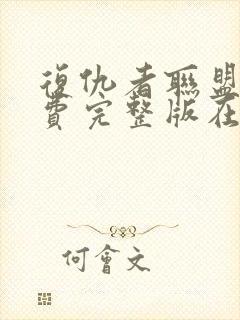 復仇者聯盟
費完整版在
何會文